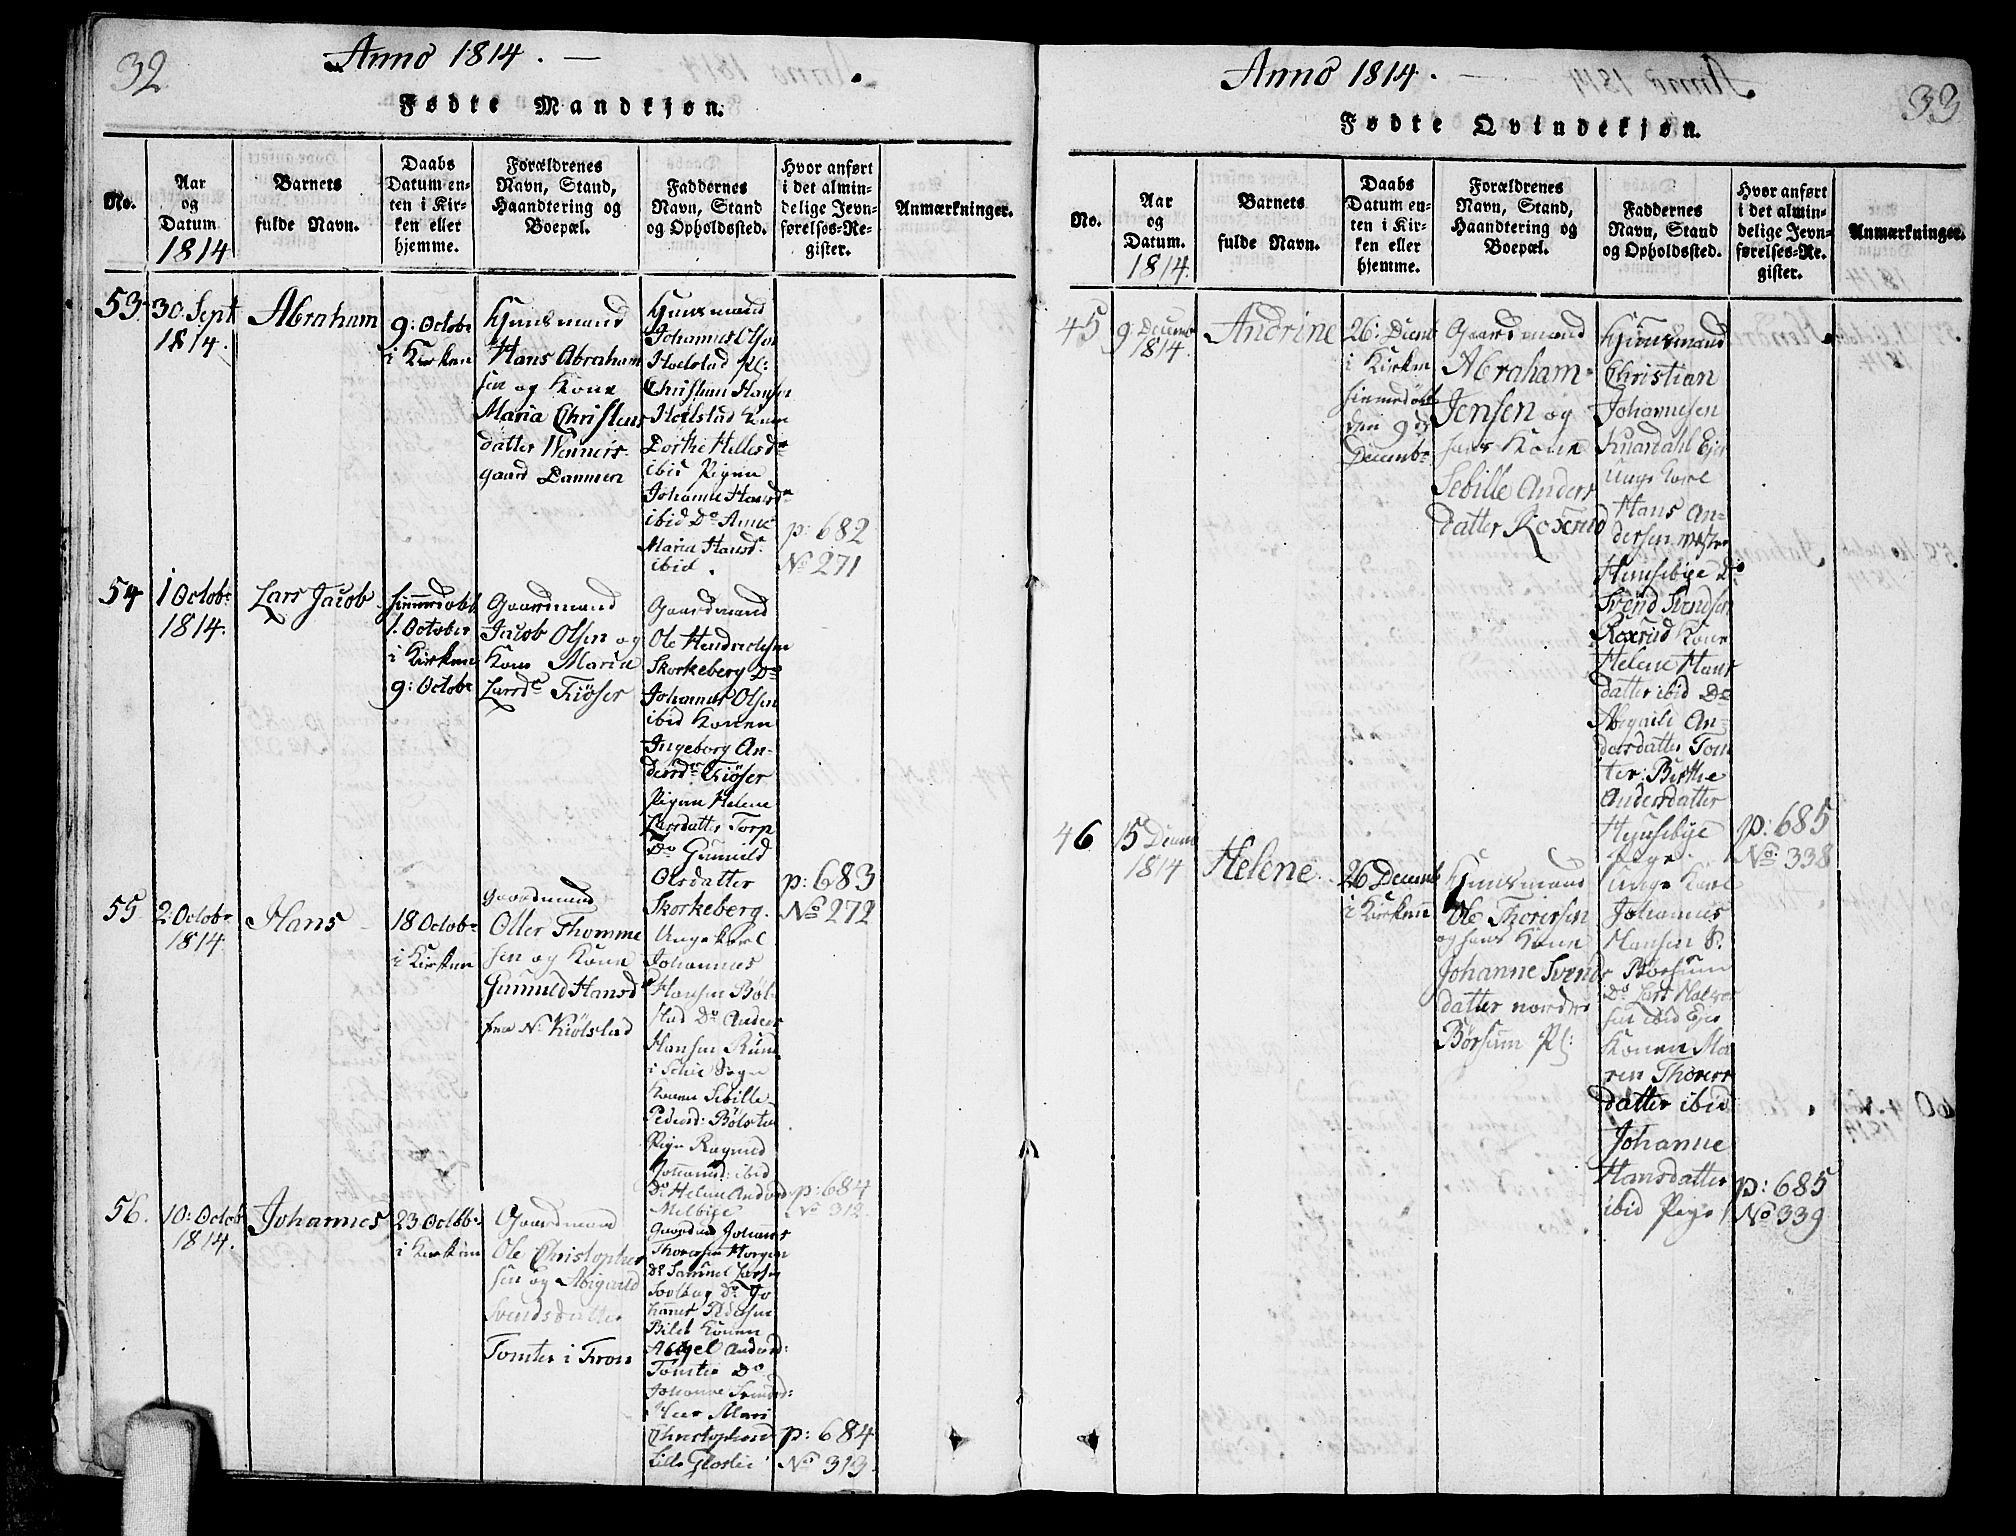 32
Anno 1814. —
Fødte Mandkjøn.
No.
Aar
og
Datum
1814
Barnets
fulde Navn.
Daabs
Datum en-
ten i Kir-
ken eller
hjemme.
Forældrenes
Navn, Stand,
Haandtering og
Boepæl.
Faddernes
Navn, Stand
og Opholdssted.
Hvor anført
i det almin-
delige Jevn-
førelses-Re-
gister.
Anmærkninger.
53.
30. Sept
1814.
Abraham
9: Octobr
i Kirken
Huusmand
Hans Abraham
sen og Kone
Maria Christens
datter Wenners
gaard Dammen
Huusmand
Johannes Olsen
Holstad Pl:
Christian Hansen
Holstad Konen
Dorthe Hellesdr
ibid Pigen
Johanne Hansdr
ibid Do Anne
Maria Hansdr
ibid.
p: 682
No 271
54
1 Octobr
1814.
Lars Jacob
hjemmedøbt
1. October
i Kirken
9: Octobr
Gaardmand
Jacob Olsen og
Kone Maria
Larsdr Kiøser
Gaardmand
Ole Hendrichsen
Skorkeberg Do
Johannes Olsen
ibid Konen
Ingeborg An-
dersdr Kiøser
Pigen Helene
Larsdatter Torp
Do Gunild
Olsdatter
Skorkeberg.
p: 683
No 272
55
2: Octobr
1814.
Hans
18 Octobr
i Kirken
Gaardmand
Oller Thomme
sen og Kone
Gunnild Hansdr
fra N. Kiølstad
Ungekarl
Johannes
Hansen Bøl-
stad Do Anders
Hansen Ruud
i Schie Sogn
Konen Sibille
Pedersd: Bølstad
Pige Ragnild
Johannesd: ibid
Do Helene Andersd
Melbÿe
p: 684
No 312
56.
10: Octob
1814.
Johannes
23 Octobr
i Kirken
Gaardmand
Ole Christopher
sen og Abigaild
Svendsdatter
Tomter i Kroer
Gaardmd Johannes
Thoresen Horgen
Do Samuel Larsen
Do Jo
hannes Pedersen
Bilet Konen
Abigel Andersd:
Tomter Do
Johanne Svendsd:
Marie
Christophersd
Lille Glaslie
p: 684
No 313.
33
Anno 1814. —
Fødte Qvindekjøn.
No.
Aar
og
Datum.
1814.
Barnets
fulde Navn.
Daabs
Datum en-
ten i Kir-
ken eller
hjemme.
Forældrenes
Navn, Stand,
Haandtering og
Boepæl.
Faddernes
Navn, Stand
og Opholdssted.
Hvor anført
i det almin-
delige Jevn-
førelses-Re-
gister.
Anmærkninger.
45
9 Decembr
1814.
Andrine
26: Decemb
i Kirken
hjemmedøbt
den 9 de
Decembr
Gaardmand
Abraham
Jensen og
hans Kone
Sebille Anders
datter Roxrud
Huusmand
Christian
Johannesen
Kuardahl Eje
Unge Karl
Hans An-
dersen vestre
Huusebÿe Do
Svend Svendsen
Roxrud Kone
Helene Hans
datter ibid Do
Abigaile An-
dersdatter Tom
ter: Birthe
Andersdatter
Huusebÿe
Pige.
p: 685
No: 338
46
15 Decemb
1814
Helene
26 Decemb
i Kirken
Huusmand
Ole Thoresen
og hans Kone
Johanne Svends
datter nordre
Børsum Pl:
Unge Karl
Johannes
Hansen S.
Børsum
Do Lars Halvor
sen ibid Eje
Konen Ma
ren Thores
datter ibid
Johanne
Hansdatter
ibid Pige
p: 685
No 339